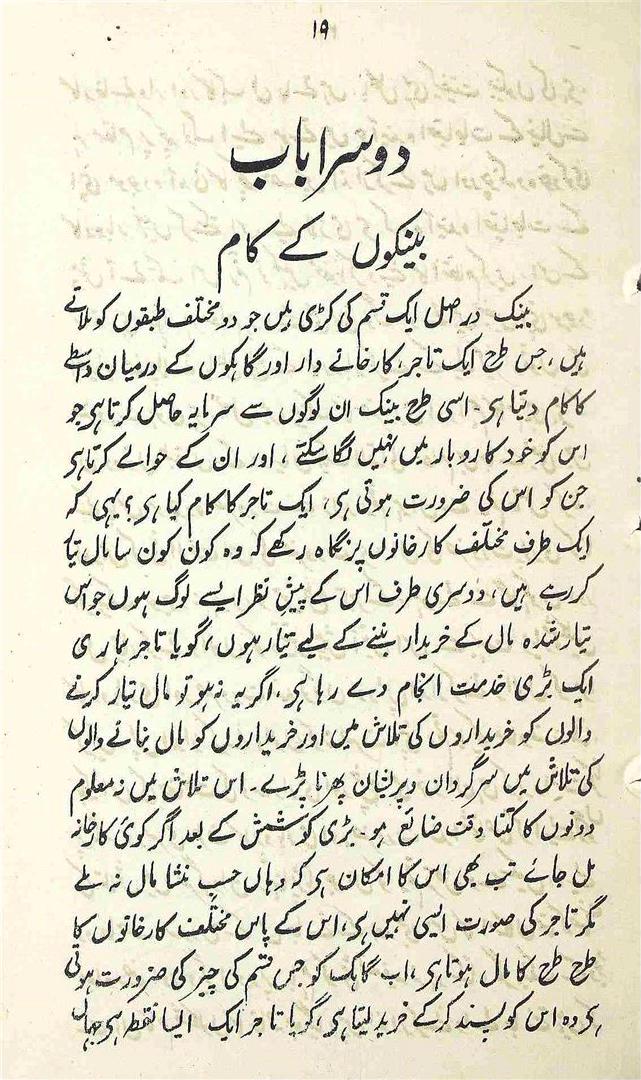 ۱۹
دوسرا باب
بینکوں کے کام
بینک در اصل ایک قسم کی کڑی ہیں جو دو مختلف طبقوں کو ملاتے
ہیں، جس طرح ایک تاجر، کارخانے دار اور گاہکوں کے درمیان واسطے
کا کام دیتا ہی۔ اسی طرح بینک ان لوگوں سے سرمایہ حاصل کرتا ہی جو
اس کو خود کاروبار میں نہیں لگا سکتے، اور ان کے حوالے کرتا ہی
جن کو اس کی ضرورت ہوتی ہی، ایک تاجر کا کام کیا ہی؟ یہی کہ
ایک طرف مختلف کارخانوں پر نگاہ رکھے کہ وہ کون کون سا مال تیا
کر رہے ہیں، دوسری طرف اس کے پیشِ نظر ایسے لوگ ہوں جو اس
تیار شدہ مال کے خریدار بننے کے لیے تیار ہوں، گویا تاجر ہماری
ایک بڑی خدمت انجام دے رہا ہی، اگر یہ نہ ہو تو مال تیار کرنے
والوں کو خریداروں کی تلاش میں اور خریداروں کو مال بنانے والوں
کی تلاش میں سرگردان و پریشان پھرنا پڑے۔ اس تلاش میں نہ معلوم
دونوں کا کتنا وقت ضائع ہو۔ بڑی کوشش کے بعد اگر کوئی کارخانہ
مل جائے تب بھی اس کا امکان ہی کہ وہاں حسبِ منشا مال نہ ملے
مگر تاجر کی صورت ایسی نہیں ہی، اس کے پاس مختلف کارخانوں کا
طرح طرح کا مال ہوتا ہی، اب گاہک کو جس قسم کی چیز کی ضرورت ہوتی
ہی وہ اس کو پسند کر کے خرید لیتا ہی، گویا تاجر ایک ایسا نقطہ ہی جہاں